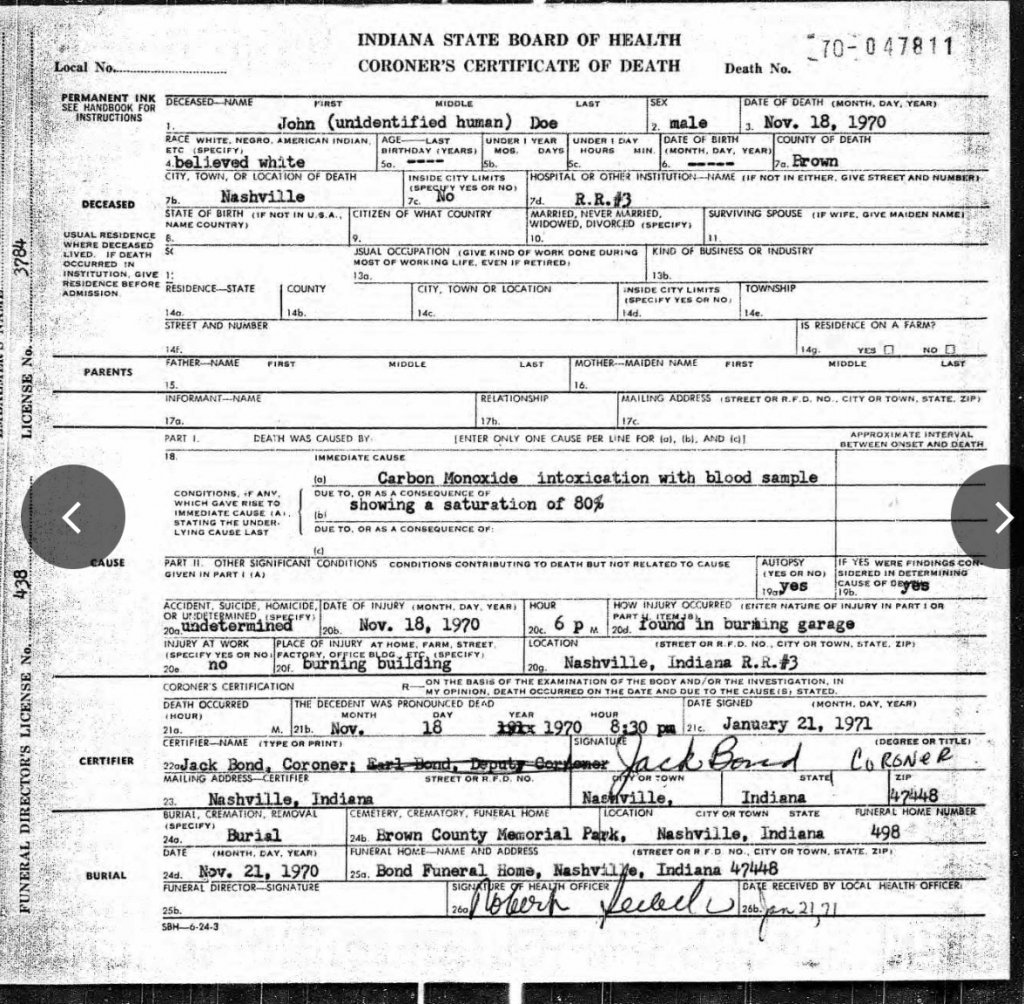 INDIANA STATE BOARD OF HEALTH
70-047811
Local No.
CORONER'S CERTIFICATE OF DEATH
Death No.
PERMANENT INK
SEE HANDBOOK FOR
INSTRUCTIONS
DECEASED—NAME FIRST MIDDLE LAST SEX DATE OF DEATH (MONTH, DAY, YEAR)
1. John (unidentified human) Doe 2. male 3. Nov. 18, 1970
RACE WHITE, NEGRO, AMERICAN INDIAN, AGE—LAST UNDER 1 YEAR UNDER 1 DAY DATE OF BIRTH COUNTY OF DEATH
ETC (SPECIFY) BIRTHDAY (YEARS) MOS. DAYS HOURS MIN. (MONTH, DAY, YEAR)
4. believed white 5a. ---- 5b. 5c. 6. ----- 7a. Brown
CITY, TOWN, OR LOCATION OF DEATH INSIDE CITY LIMITS HOSPITAL OR OTHER INSTITUTION—NAME (IF NOT IN EITHER, GIVE STREET AND NUMBER)
(SPECIFY YES OR NO)
7b. Nashville 7c. No 7d. R.R.#3
DECEASED
STATE OF BIRTH (IF NOT IN U.S.A., CITIZEN OF WHAT COUNTRY MARRIED, NEVER MARRIED, SURVIVING SPOUSE (IF WIFE, GIVE MAIDEN NAME)
NAME COUNTRY) WIDOWED, DIVORCED (SPECIFY)
8. 9. 10. 11.
USUAL RESIDENCE
WHERE DECEASED
LIVED. IF DEATH
OCCURRED IN
INSTITUTION, GIVE
RESIDENCE BEFORE
ADMISSION.
USUAL OCCUPATION (GIVE KIND OF WORK DONE DURING KIND OF BUSINESS OR INDUSTRY
MOST OF WORKING LIFE, EVEN IF RETIRED)
13a. 13b.
RESIDENCE—STATE COUNTY CITY, TOWN OR LOCATION INSIDE CITY LIMITS TOWNSHIP
(SPECIFY YES OR NO)
14a. 14b. 14c. 14d. 14e.
STREET AND NUMBER IS RESIDENCE ON A FARM?
14f. 14g. YES NO
PARENTS
FATHER—NAME FIRST MIDDLE LAST MOTHER—MAIDEN NAME FIRST MIDDLE LAST
15. 16.
INFORMANT—NAME RELATIONSHIP MAILING ADDRESS (STREET OR R.F.D. NO., CITY OR TOWN, STATE, ZIP)
17a. 17b. 17c.
PART I. DEATH WAS CAUSED BY: [ENTER ONLY ONE CAUSE PER LINE FOR (a), (b), AND (c)] APPROXIMATE INTERVAL
BETWEEN ONSET AND DEATH
18. IMMEDIATE CAUSE
(a) Carbon Monoxide intoxication with blood sample
CONDITIONS, IF ANY,
WHICH GAVE RISE TO
IMMEDIATE CAUSE (A),
STATING THE UNDER-
LYING CAUSE LAST
DUE TO, OR AS A CONSEQUENCE OF
(b) showing a saturation of 80%
DUE TO, OR AS A CONSEQUENCE OF:
(c)
CAUSE
PART II. OTHER SIGNIFICANT CONDITIONS CONDITIONS CONTRIBUTING TO DEATH BUT NOT RELATED TO CAUSE AUTOPSY IF YES WERE FINDINGS CON-
GIVEN IN PART I (A) (YES OR NO) SIDERED IN DETERMINING
CAUSE OF DEATH
19a. yes 19b. yes
ACCIDENT, SUICIDE, HOMICIDE, DATE OF INJURY (MONTH, DAY, YEAR) HOUR HOW INJURY OCCURRED (ENTER NATURE OF INJURY IN PART I OR
OR UNDETERMINED (SPECIFY) PART II, ITEM 18)
20a. undetermined 20b. Nov. 18, 1970 20c. 6 p M. 20d. found in burning garage
INJURY AT WORK PLACE OF INJURY AT HOME, FARM, STREET, LOCATION (STREET OR R.F.D. NO., CITY OR TOWN, STATE, ZIP)
(SPECIFY YES OR NO) FACTORY, OFFICE BLDG., ETC. (SPECIFY)
20e. no 20f. burning building 20g. Nashville, Indiana R.R.#3
CORONER'S CERTIFICATION R—ON THE BASIS OF THE EXAMINATION OF THE BODY AND/OR THE INVESTIGATION, IN
MY OPINION, DEATH OCCURRED ON THE DATE AND DUE TO THE CAUSE(S) STATED.
DEATH OCCURRED THE DECEDENT WAS PRONOUNCED DEAD DATE SIGNED (MONTH, DAY, YEAR)
(HOUR) MONTH DAY YEAR HOUR
21a. M. 21b. Nov. 18 1970 8:30 pm 21c. January 21, 1971
CERTIFIER
CERTIFIER—NAME (TYPE OR PRINT) SIGNATURE (DEGREE OR TITLE)
22a. Jack Bond, Coroner; Earl Bond, Deputy Coroner Jack Bond CORONER
MAILING ADDRESS—CERTIFIER STREET OR R.F.D. NO. CITY OR TOWN STATE ZIP
23. Nashville, Indiana Nashville, Indiana 47448
BURIAL, CREMATION, REMOVAL CEMETERY, CREMATORY, FUNERAL HOME LOCATION CITY OR TOWN STATE FUNERAL HOME NUMBER
(SPECIFY)
24a. Burial 24b. Brown County Memorial Park, Nashville, Indiana 498
BURIAL
DATE (MONTH, DAY, YEAR) FUNERAL HOME—NAME AND ADDRESS (STREET OR R.F.D. NO., CITY OR TOWN, STATE, ZIP)
24d. Nov. 21, 1970 25a. Bond Funeral Home, Nashville, Indiana 47448
FUNERAL DIRECTOR—SIGNATURE SIGNATURE OF HEALTH OFFICER DATE RECEIVED BY LOCAL HEALTH OFFICER
25b. 26a. Robert 26b. Jan 21, 71
SBH—6-24-3
LICENSE No. 3784
FUNERAL DIRECTOR'S LICENSE No. 438